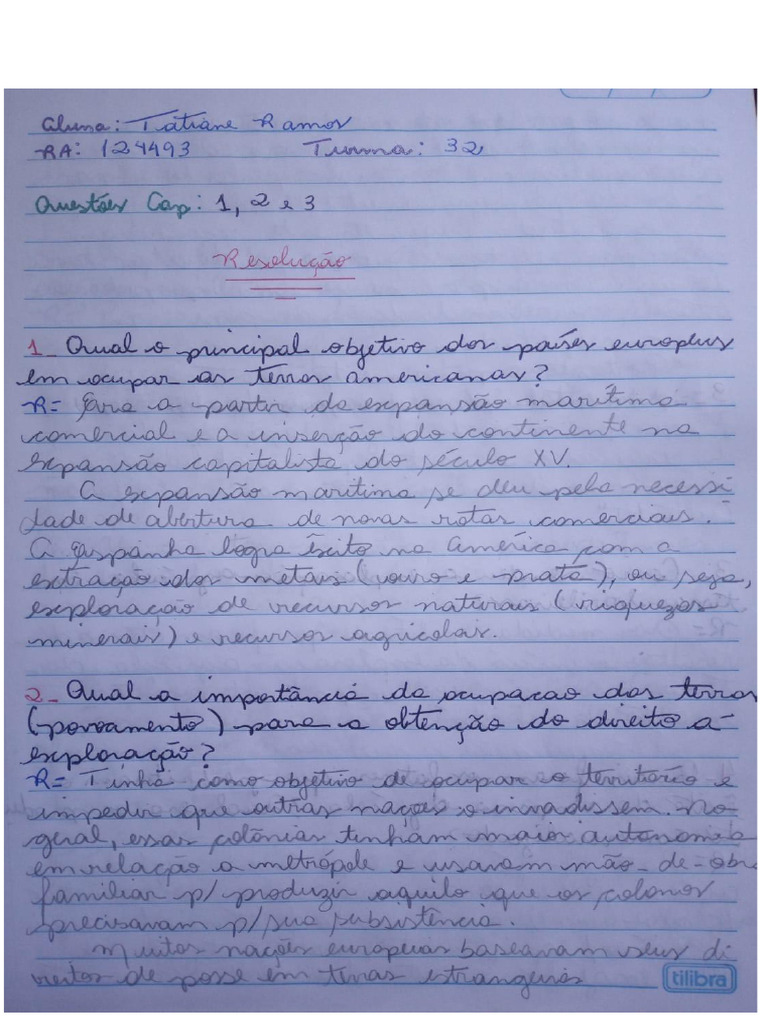 Aluna: Tatiane Ramos
RA: 124493 Turma: 32
Questões Cap: 1, 2 e 3
Resolução
1- Qual o principal objetivo dos países europeus
em ocupar as terras americanas?
R= Era a partir da expansão marítima
comercial e a inserção do continente na
expansão capitalista do século XV.
A expansão maritima se deu pela necessi
dade de abertura de novas rotas comerciais.
A Espanha logra êxito na América com a
extração dos metais (ouro e prata), ou seja,
exploração de recursos naturais (riquezas
minerais) e recursos agricolas.
2- Qual a importância da ocupacao das terras
(povoamento) para a obtenção do direito a
exploração?
R= Tinha como objetivo de ocupar o território e
impedir que outras nações o invadissem. No
geral, essas colônias tinham maior autonomia
em relação a metrópole e usavam mão-de-obra
familiar p/ produzir aquilo que os colonos
precisavam p/ sua subsistência.
Muitas nações europeias baseavam seus di
reitos de posse em terras estrangeiras
tilibra